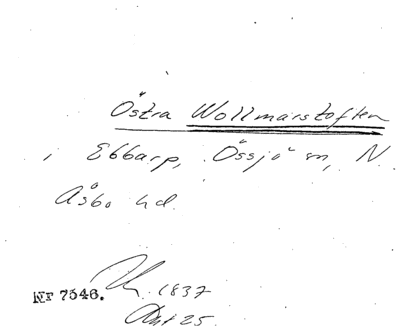 Östra Wollmarstoften
i Ebbarp, Össjö sn, N.
Åsbo hd.
Nr 7546. 1837
Akt 25